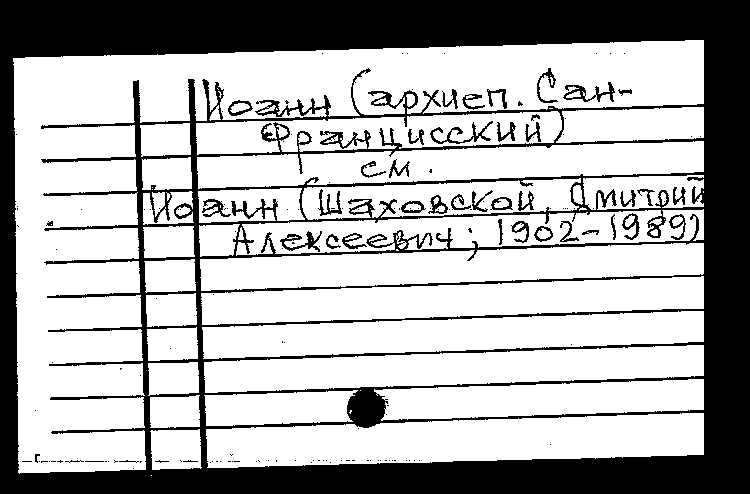 Иоанн (архиеп. Сан-
Францисский)
см.
Иоанн (Шаховской, Дмитрий
Алексеевич; 1902-1989)